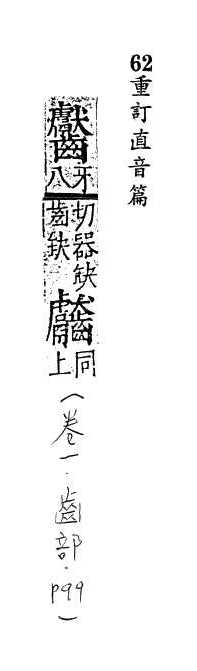 62重訂直音篇
齾牙八切器缺齒缺
同上(卷一.齒部.p99)